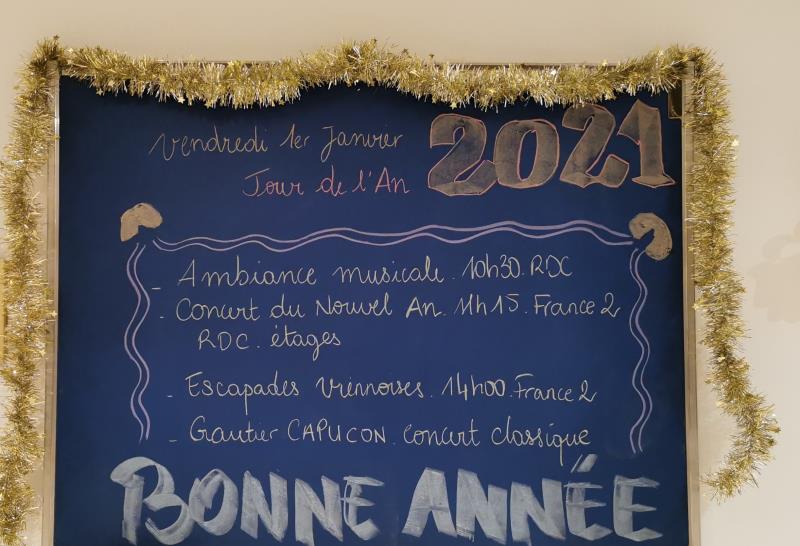 Vendredi 1er Janvier 2021
Jour de l'An
- Ambiance musicale. 10h30. RDC
- Concert du Nouvel An. 11h15. France 2
RDC. étages
- Escapades Viennoises. 14h00. France 2
- Gautier CAPUCON. concert classique
BONNE ANNÉE